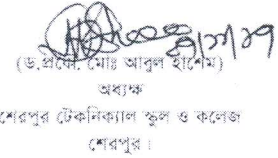 (ড.প্রকৌ. মোঃ আবুল হাশেম)
অধ্যক্ষ
শেরপুর টেকনিক্যাল স্কুল ও কলেজ
শেরপুর।